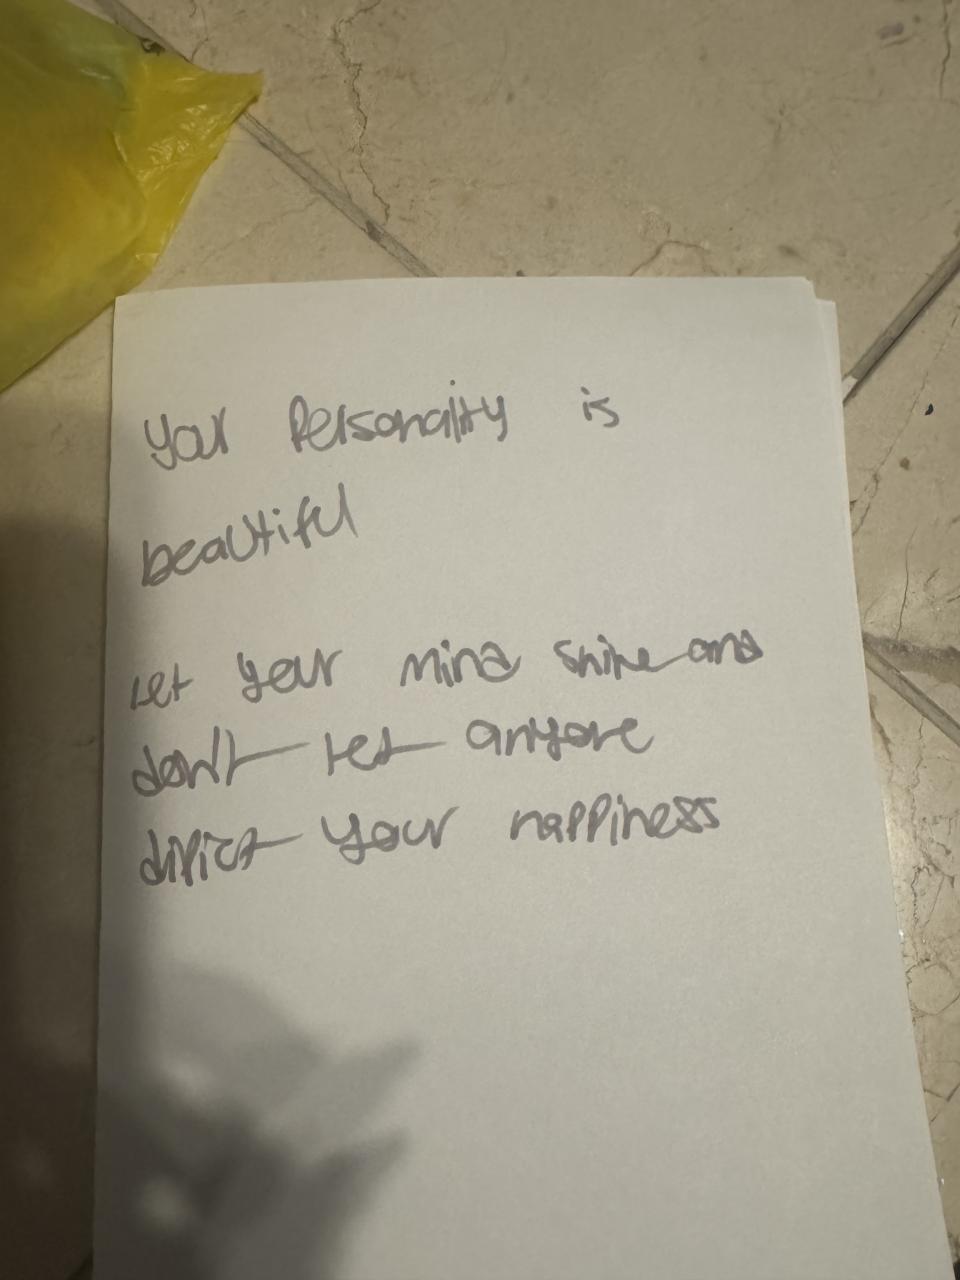 Your Personality is
beautiful
Let your mind shine and
don't let anyone
your happiness